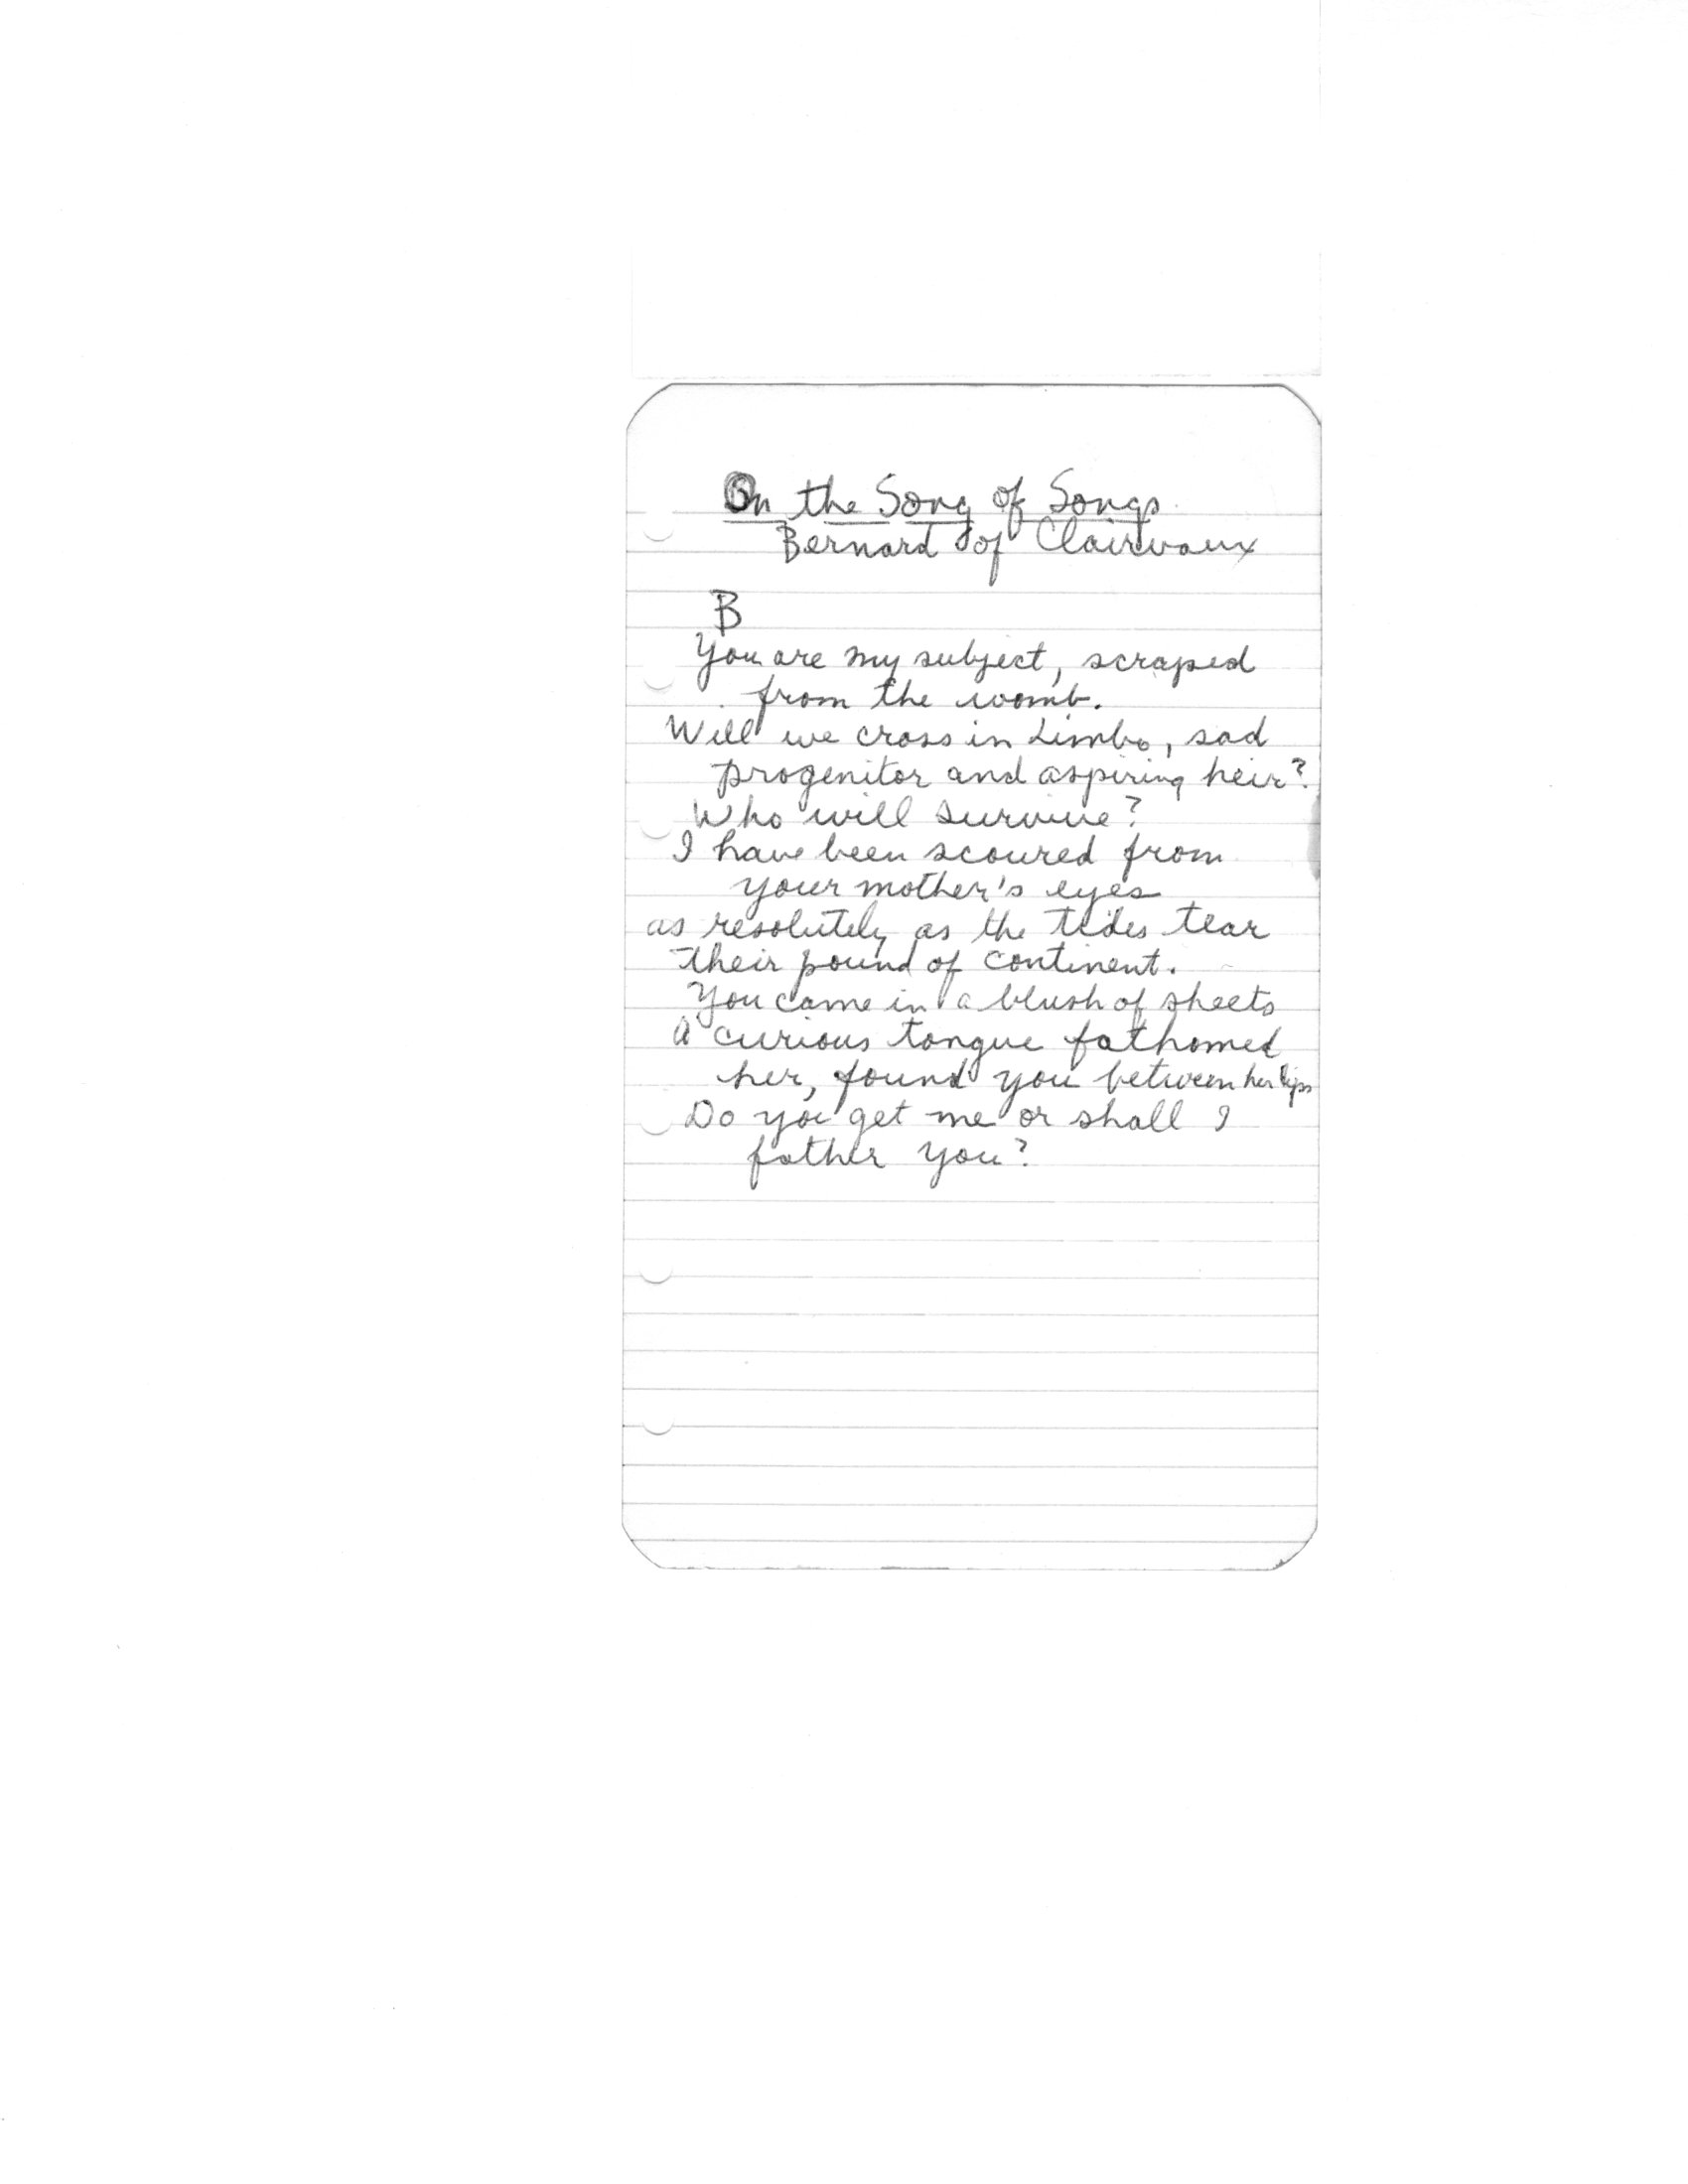 On the Song of Songs
Bernard of Clairvaux
B
You are my subject, scraped
from the womb.
Will we cross in Limbo, sad
progenitor and aspiring heir?
Who will survive?
I have been scoured from
your mother's eyes
as resolutely as the tides tear
their pound of continent.
You came in a blush of sheets
A curious tongue fathomed
her, found you between her lips
Do you get me or shall I
father you?